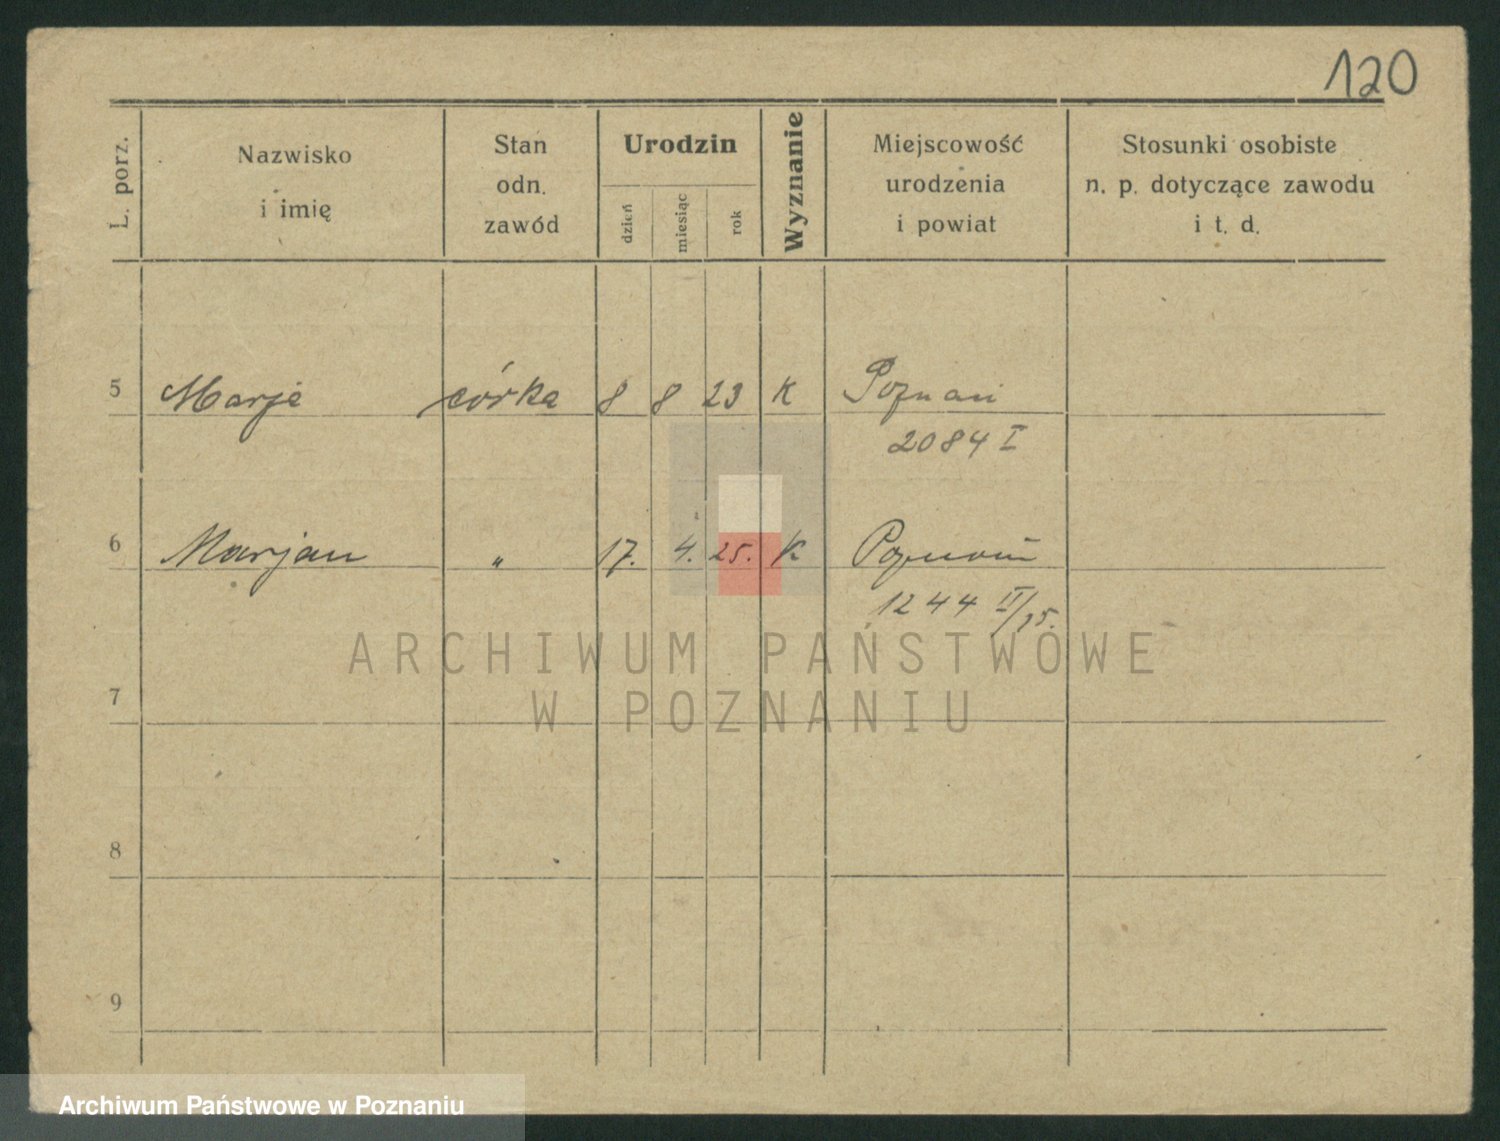 120
L. porz.
Nazwisko
i imię
Stan
odn.
zawód
Urodzin
dzień
miesiąc
rok
Wyznanie
Miejscowość
urodzenia
i powiat
Stosunki osobiste
n. p. dotyczące zawodu
i t. d.
5 Marja córka 8 8 23 K Poznań
2084 I
6 Marjan " 17. 4. 25. K Poznań
1244 II/25.
7
8
9
ARCHIWUM PAŃSTWOWE
W POZNANIU
Archiwum Państwowe w Poznaniu